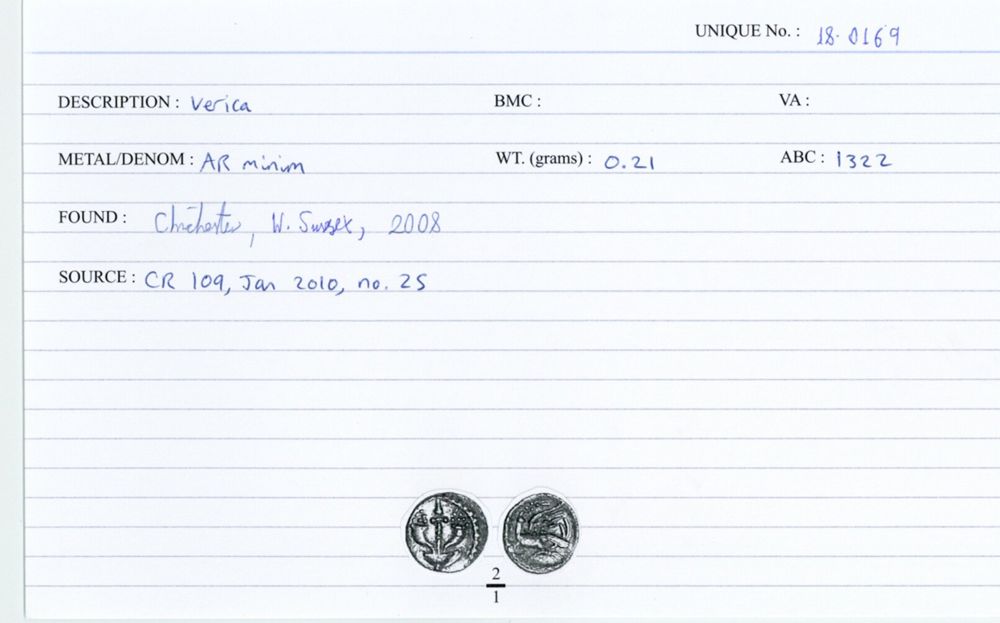 UNIQUE No. : 18.0169
DESCRIPTION : Verica BMC : VA :
METAL/DENOM : AR minim WT. (grams) : 0.21 ABC : 1322
FOUND : Chichester, W. Sussex, 2008
SOURCE : CR 109, Jan 2010, no. 25
2
1